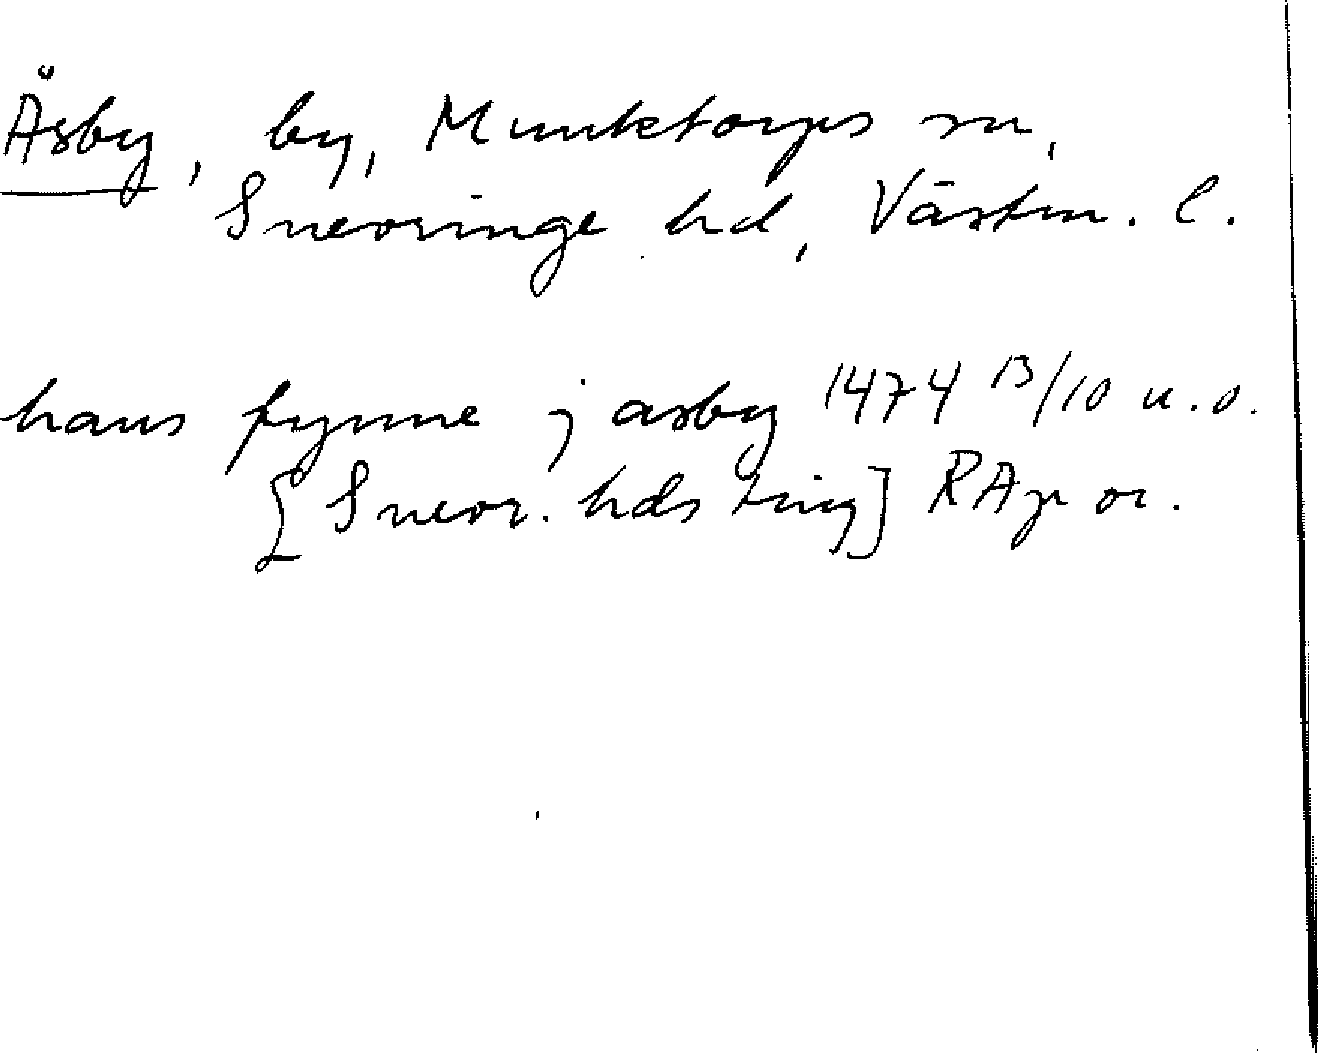 Äsby, by, Munktorps sn,
Snevringe hd, Västm. l.
hans fynne j asby 1474 13/10 u.o.
[Snevr. hds ting] RAp or.